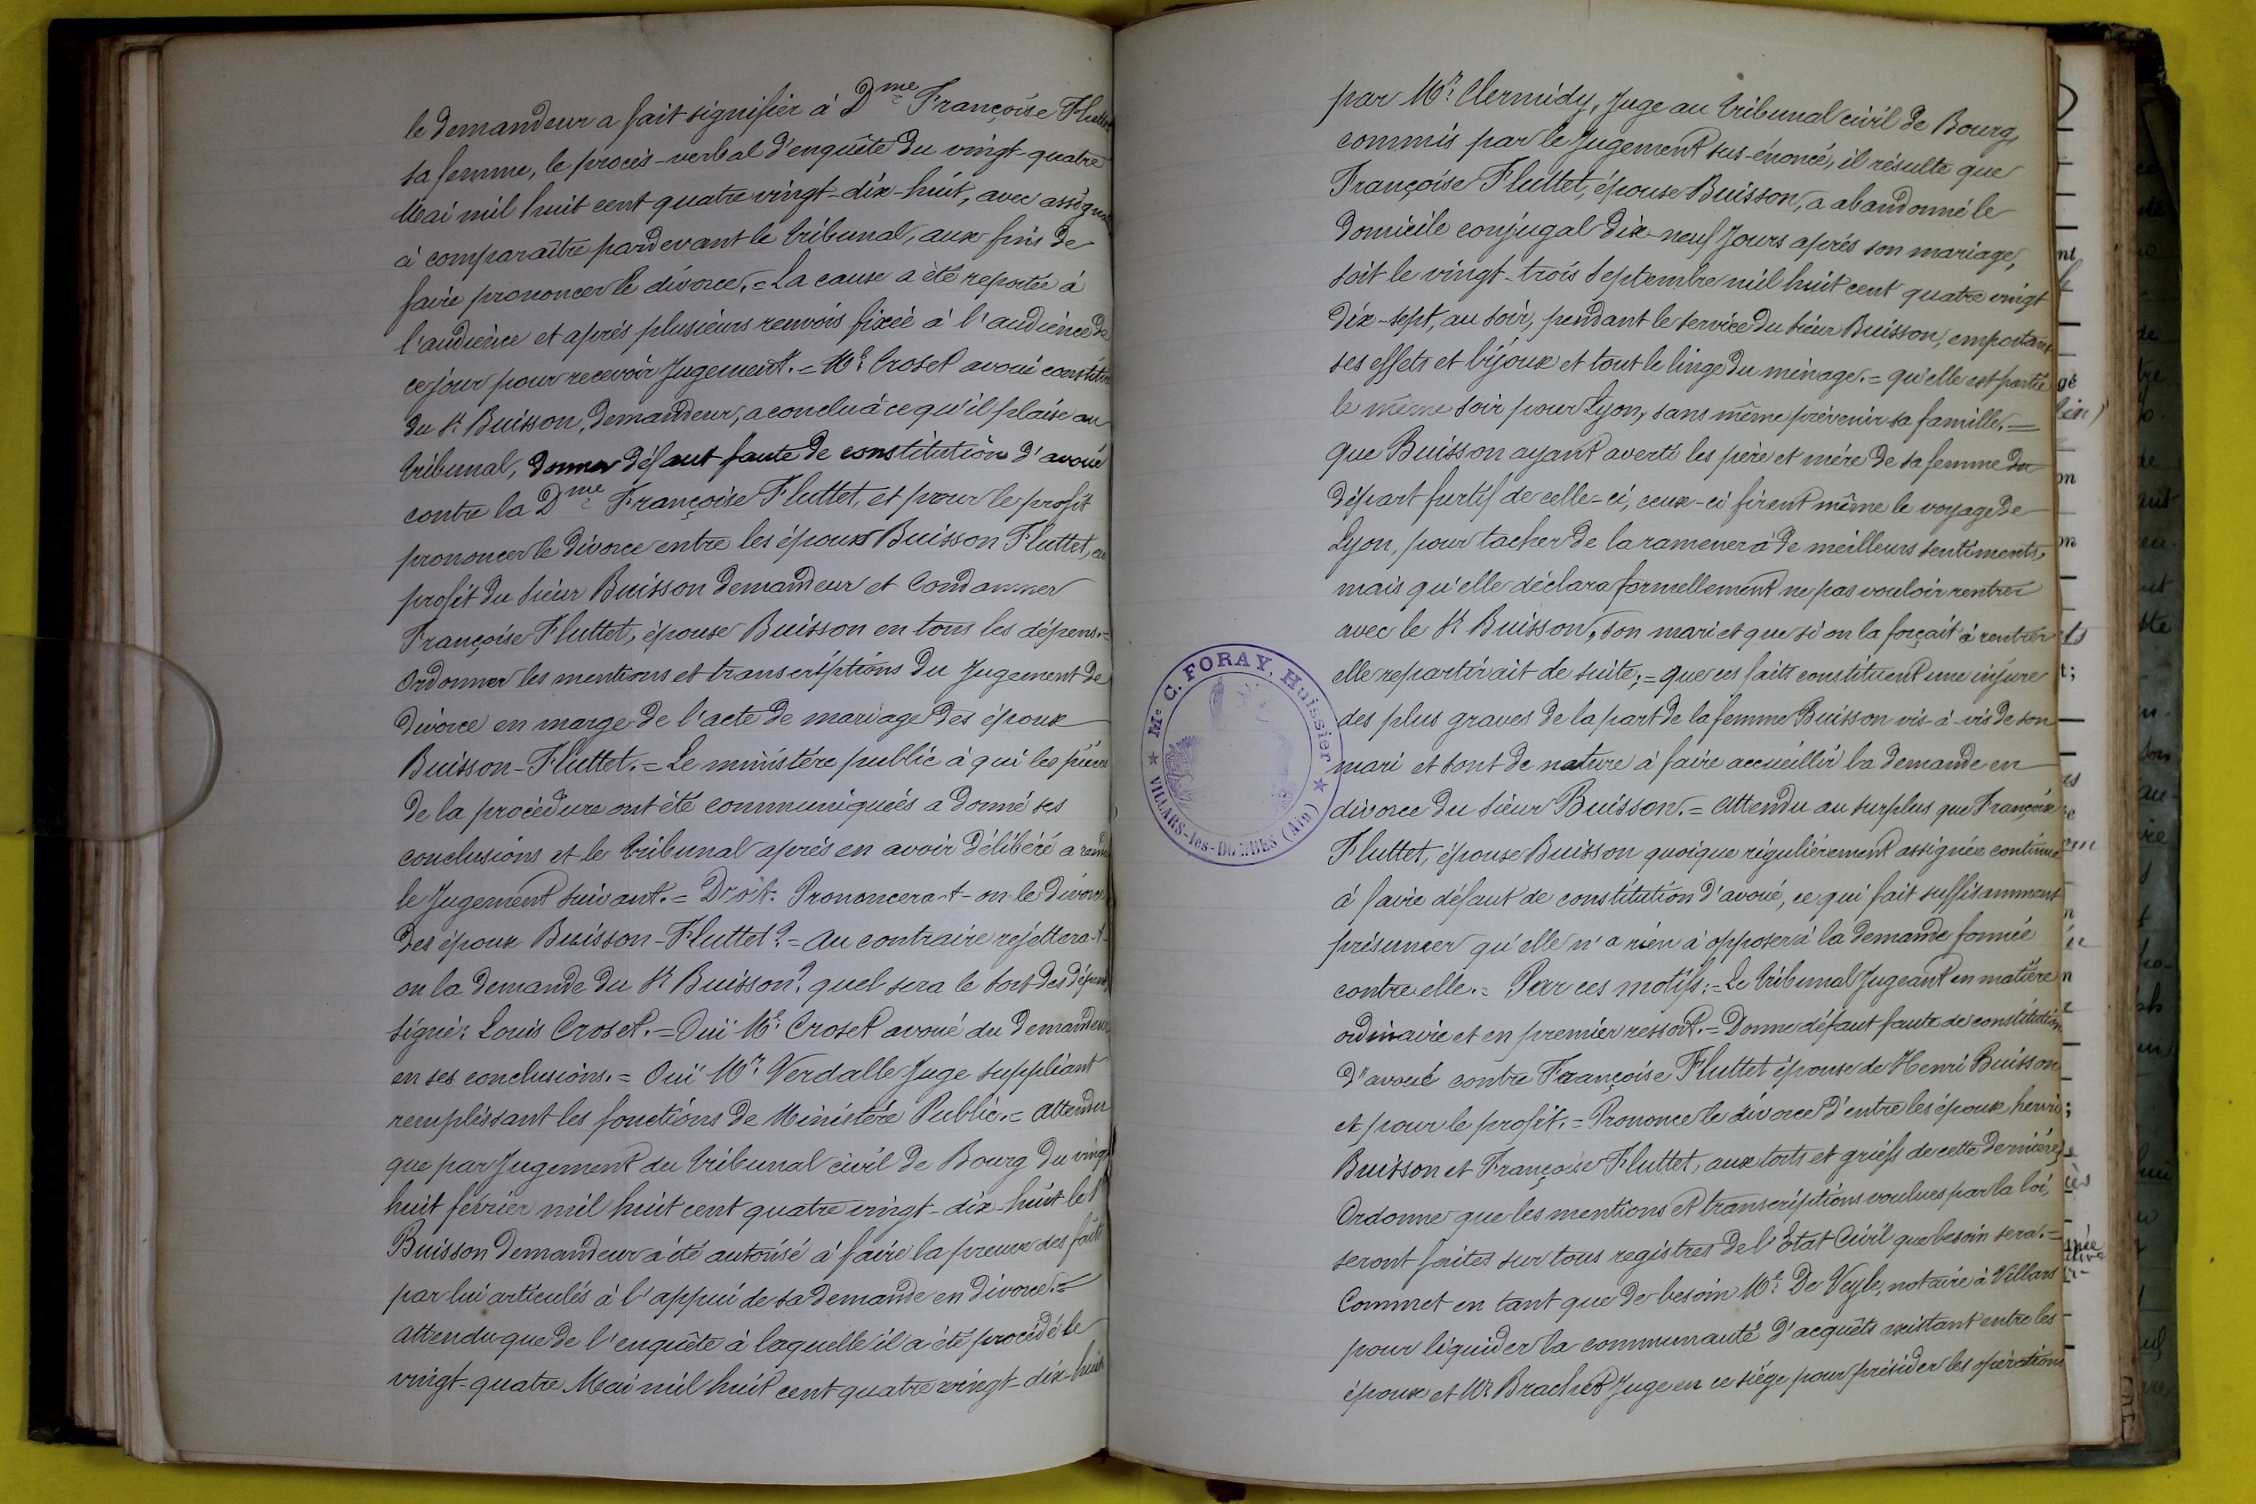 le demandeur a fait signifier à Dme Françoise Fluttet
sa femme, le procès-verbal d'enquête du vingt-quatre
Mai mil huit cent quatre vingt-dix-huit, avec
à comparaître pardevant le tribunal, aux fins de
faire prononcer le divorce. = La cause a été reportée à
l'audience et après plusieurs renvois fixée à l'audience de
ce jour pour recevoir Jugement. = Me Croset avoué constitué
du Sr Buisson, demandeur, a conclu à ce qu'il plaise au
tribunal, donner défaut faute de constitution d'avoué
contre la Dme Françoise Fluttet, et pour le profit
prononcer le divorce entre les époux Buisson Fluttet, au
profit du sieur Buisson demandeur et Condamner
Françoise Fluttet, épouse Buisson en tous les dépens. =
Ordonner les mentions et transcriptions du Jugement de
divorce en marge de l'acte de mariage des époux
Buisson-Fluttet. = Le ministère public à qui les pièces
de la procédure ont été communiquées a donné ses
conclusions et le tribunal après en avoir délibéré a rendu
le Jugement suivant. = Droit. Prononcera-t-on le divorce
des époux Buisson-Fluttet ? = Au contraire rejettera-t-
on la demande du Sr Buisson ? quel sera le sort des dépens
signé : Louis Croset. = Ouï Me Croset avoué du demandeur
en ses conclusions. = Ouï Mr Verdalle Juge suppléant
remplissant les fonctions de Ministère Public. = Attendu
que par Jugement du tribunal civil de Bourg du vingt
huit février mil huit cent quatre vingt-dix-huit le Sr
Buisson demandeur a été autorisé à faire la preuve des faits
par lui articulés à l'appui de sa demande en divorce. =
Attendu que de l'enquête à laquelle il a été procédé le
vingt-quatre Mai mil huit cent quatre vingt-dix-huit
par Mr Clermidy, Juge au tribunal civil de Bourg,
commis par le Jugement sus-énoncé, il résulte que
Françoise Fluttet, épouse Buisson, a abandonné le
domicile conjugal dix-neuf Jours après son mariage,
soit le vingt-trois Septembre mil huit cent quatre vingt
dix-sept, au soir, pendant le service du sieur Buisson, emportant
ses effets et bijoux et tout le linge du ménage. = qu'elle est partie
le même soir pour Lyon, sans même prévenir sa famille. =
que Buisson ayant averti les père et mère de sa femme du
départ furtif de celle-ci, ceux-ci firent même le voyage de
Lyon, pour tacher de la ramener à de meilleurs sentiments,
mais qu'elle déclara formellement ne pas vouloir rentrer
avec le Sr Buisson, son mari et que si on la forçait à rentrer
elle repartirait de suite, = que ces faits constituent une injure
des plus graves de la part de la femme Buisson vis-à-vis de son
mari et sont de nature à faire accueillir la demande en
divorce du sieur Buisson. = Attendu au surplus que Françoise
Fluttet, épouse Buisson quoique régulièrement assignée continue
à faire défaut de constitution d'avoué, ce qui fait suffisamment
présumer qu'elle n'a rien à opposer à la demande formée
contre elle. = Par ces motifs : = Le tribunal Jugeant en matière
ordinaire et en premier ressort. = Donne défaut faute de constitution
d'avoué contre Françoise Fluttet épouse de Henri Buisson
et pour le profit. = Prononce le divorce d'entre les époux henri
Buisson et Françoise Fluttet, aux torts et griefs de cette dernière,
Ordonne que les mentions et transcriptions voulues par la loi,
seront faites sur tous registres de l'Etat Civil que besoin sera. =
Commet en tant que de besoin Me De Veyle, notaire à Villars
pour liquider la communauté d'acquêts existant entre les
époux et Mr Brachet Juge en ce siège pour présider les opérations
Me C. FORAY, Huissier
VILLARS-les-DOMBES (Ain)